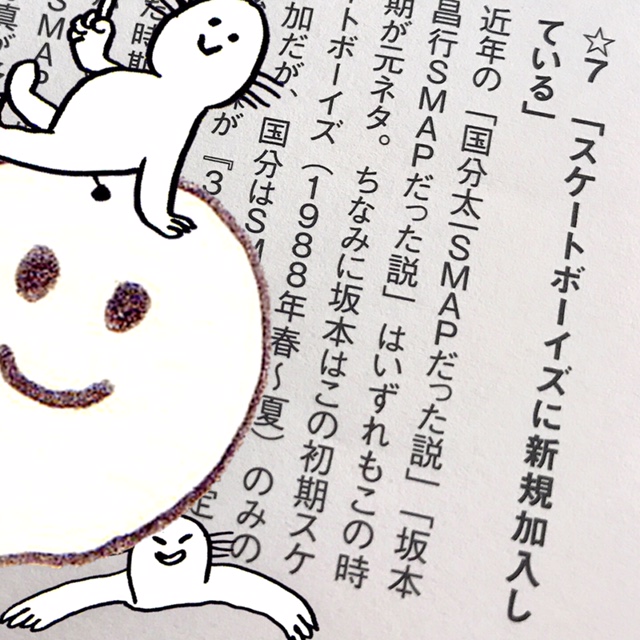 ☆7 「スケートボーイズに新規加入し
ている」
近年の「国分太一SMAPだった説」「坂本
昌行SMAPだった説」はいずれもこの時
期が元ネタ。ちなみに坂本はこの初期スケ
ートボーイズ（1988年春～夏）のみの
加だが、国分はSM
が『3
時期
SMAP
真が